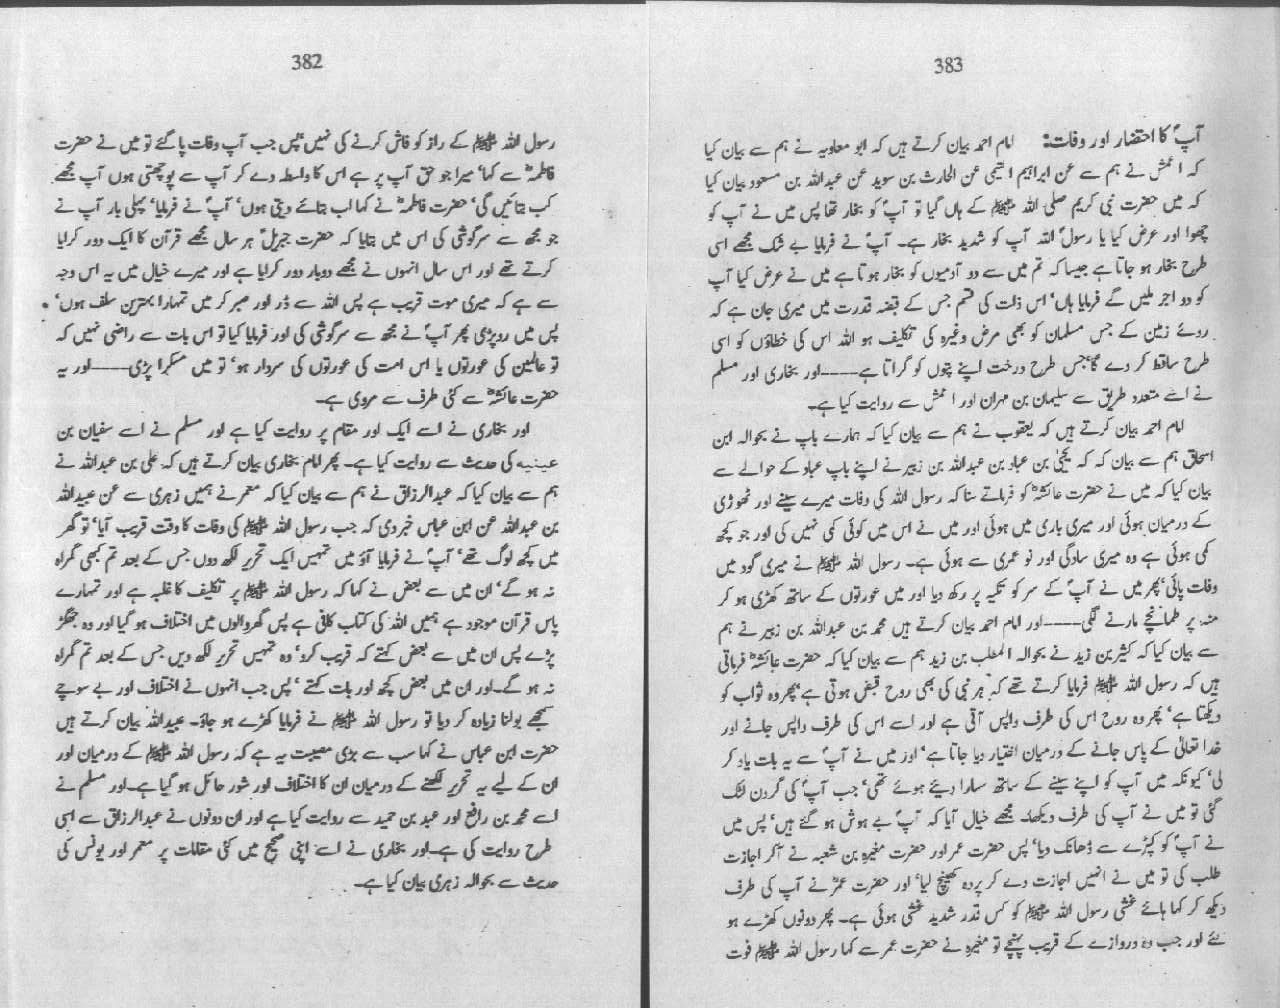 382
رسول اللہ ﷺ کے راز کو فاش کرنے کی نہیں‘ پس جب آپ وفات پا گئے تو میں نے حضرت
فاطمہؓ سے کہا‘ میرا جو حق آپ پر ہے اس کا واسطہ دے کر آپ سے پوچھتی ہوں آپ مجھے
کب بتائیں گی‘ حضرت فاطمہؓ نے کہا اب بتائے دیتی ہوں‘ آپؐ نے فرمایا‘ پہلی بار آپ نے
جو مجھ سے سرگوشی کی اس میں بتایا کہ حضرت جبریلؑ ہر سال مجھے قرآن کا ایک دور کرایا
کرتے تھے اور اس سال انہوں نے مجھے دوبار دور کرایا ہے اور میرے خیال میں یہ اس وجہ
سے ہے کہ میری موت قریب ہے پس اللہ سے ڈر اور صبر کر میں تمہارا بہترین سلف ہوں‘
پس میں روپڑی پھر آپؐ نے مجھ سے سرگوشی کی اور فرمایا کیا تو اس بات سے راضی نہیں کہ
تو عالمین کی عورتوں یا اس امت کی عورتوں کی سردار ہو‘ تو میں مسکرا پڑی۔۔۔۔اور یہ
حضرت عائشہؓ سے کئی طرف سے مروی ہے۔
اور بخاری نے اسے ایک اور مقام پر روایت کیا ہے اور مسلم نے اسے سفیان بن
عینیہ کی حدیث سے روایت کیا ہے۔ پھر امام بخاری بیان کرتے ہیں کہ علی بن عبداللہ نے
ہم سے بیان کیا کہ عبدالرزاق نے ہم سے بیان کیا کہ معمر نے ہمیں زہری سے عن عبیداللہ
بن عبداللہ عن ابن عباس خبر دی کہ جب رسول اللہ ﷺ کی وفات کا وقت قریب آیا‘ تو گھر
میں کچھ لوگ تھے‘ آپؐ نے فرمایا آؤ میں تمہیں ایک تحریر لکھ دوں جس کے بعد تم کبھی گمراہ
نہ ہو گے‘ ان میں سے بعض نے کہا کہ رسول اللہ ﷺ پر تکلیف کا غلبہ ہے اور تمہارے
پاس قرآن موجود ہے ہمیں اللہ کی کتاب کافی ہے پس گھر والوں میں اختلاف ہو گیا اور وہ جھگڑ
پڑے پس ان میں سے بعض کہتے کہ قریب کرو‘ وہ تمہیں تحریر لکھ دیں جس کے بعد تم گمراہ
نہ ہو گے۔اور ان میں بعض کچھ اور بات کہتے‘ پس جب انہوں نے اختلاف اور بے سوچے
سمجھے بولنا زیادہ کر دیا تو رسول اللہ ﷺ نے فرمایا کھڑے ہو جاؤ۔ عبیداللہ بیان کرتے ہیں
حضرت ابن عباس نے کہا سب سے بڑی مصیبت یہ ہے کہ رسول اللہ ﷺ کے درمیان اور
ان کے لیے یہ تحریر لکھنے کے درمیان ان کا اختلاف اور شور حائل ہو گیا ہے۔اور مسلم نے
اسے محمد بن رافع اور عبد بن حمید سے روایت کیا ہے اور ان دونوں نے عبدالرزاق سے اسی
طرح روایت کی ہے۔اور بخاری نے اسے اپنی صحیح میں کئی مقامات پر معمر اور یونس کی
حدیث سے بحوالہ زہری بیان کیا ہے۔
383
آپؐ کا احتضار اور وفات: امام احمد بیان کرتے ہیں کہ ابو معاویہ نے ہم سے بیان کیا
کہ اعمش نے ہم سے عن ابراہیم التیمی عن الحارث بن سوید عن عبداللہ بن مسعود بیان کیا
کہ میں حضرت نبی کریم صلی اللہ ﷺ کے ہاں گیا تو آپؐ کو بخار تھا پس میں نے آپ کو
چھوا اور عرض کیا یا رسولؐ اللہ آپ کو شدید بخار ہے۔ آپؐ نے فرمایا بے شک مجھے اسی
طرح بخار ہو جاتا ہے جیسا کہ تم میں سے دو آدمیوں کو بخار ہو تا ہے میں نے عرض کیا آپ
کو دو اجر ملیں گے فرمایا ہاں‘ اس ذات کی قسم جس کے قبضہ قدرت میں میری جان ہے کہ
روئے زمین کے جس مسلمان کو بھی مرض وغیرہ کی تکلیف ہو اللہ اس کی خطاؤں کو اسی
طرح ساقط کر دے گا‘جس طرح درخت اپنے پتوں کو گراتا ہے۔۔۔۔اور بخاری اور مسلم
نے اسے متعدد طریق سے سلیمان بن مہران اور اعمش سے روایت کیا ہے۔
امام احمد بیان کرتے ہیں کہ یعقوب نے ہم سے بیان کیا کہ ہمارے باپ نے بحوالہ ابن
اسحاق ہم سے بیان کہ کہ یحییٰ بن عباد بن عبداللہ بن زبیر نے اپنے باپ عباد کے حوالے سے
بیان کیا کہ میں نے حضرت عائشہؓ کو فرماتے سنا کہ رسول اللہ کی وفات میرے سینے اور ٹھوڑی
کے درمیان ہوئی اور میری باری میں ہوئی اور میں نے اس میں کوئی کمی نہیں کی اور جو کچھ
کمی ہوئی ہے وہ میری سادگی اور نو عمری سے ہوئی ہے۔ رسول اللہ ﷺ نے میری گود میں
وفات پائی‘پھر میں نے آپؐ کے سر کو تکیہ پر رکھ دیا اور میں عورتوں کے ساتھ کھڑی ہو کر
منہ پر طمانچے مارنے لگی۔۔۔۔اور امام احمد بیان کرتے ہیں محمد بن عبداللہ بن زبیر نے ہم
سے بیان کیا کہ کثیر بن زید نے بحوالہ المطلب بن زید ہم سے بیان کیا کہ حضرت عائشہؓ فرماتی
ہیں کہ رسول اللہ ﷺ فرمایا کرتے تھے کہ ہر نبی کی بھی روح قبض ہوتی ہے‘پھر وہ ثواب کو
دیکھتا ہے‘ پھر وہ روح اس کی طرف واپس آتی ہے اور اسے اس کی طرف واپس جانے اور
خدا تعالیٰ کے پاس جانے کے درمیان اختیار دیا جاتا ہے‘ اور میں نے آپؐ سے یہ بات یاد کر
لی‘ کیونکہ میں آپ کو اپنے سینے کے ساتھ سہارا دیئے ہوئے تھی‘ جب آپؐ کی گردن لٹک
گئی تو میں نے آپ کی طرف دیکھا۔ مجھے خیال آیا کہ آپؐ بے ہوش ہو گئے ہیں‘ پس میں
نے آپؐ کو کپڑے سے ڈھانک دیا‘ پس حضرت عمر اور حضرت مغیرہ بن شعبہ نے آکر اجازت
طلب کی تو میں نے انہیں اجازت دے کر پردہ کھینچ لیا‘ اور حضرت عمرؓ نے آپ کی طرف
دیکھ کر کہا ہائے غشی رسول اللہ ﷺ کو کس قدر شدید غشی ہوئی ہے۔ پھر دونوں کھڑے ہو
گئے اور جب وہ دروازے کے قریب پہنچے تو مغیرہ نے حضرت عمر سے کہا رسول اللہ ﷺ فوت